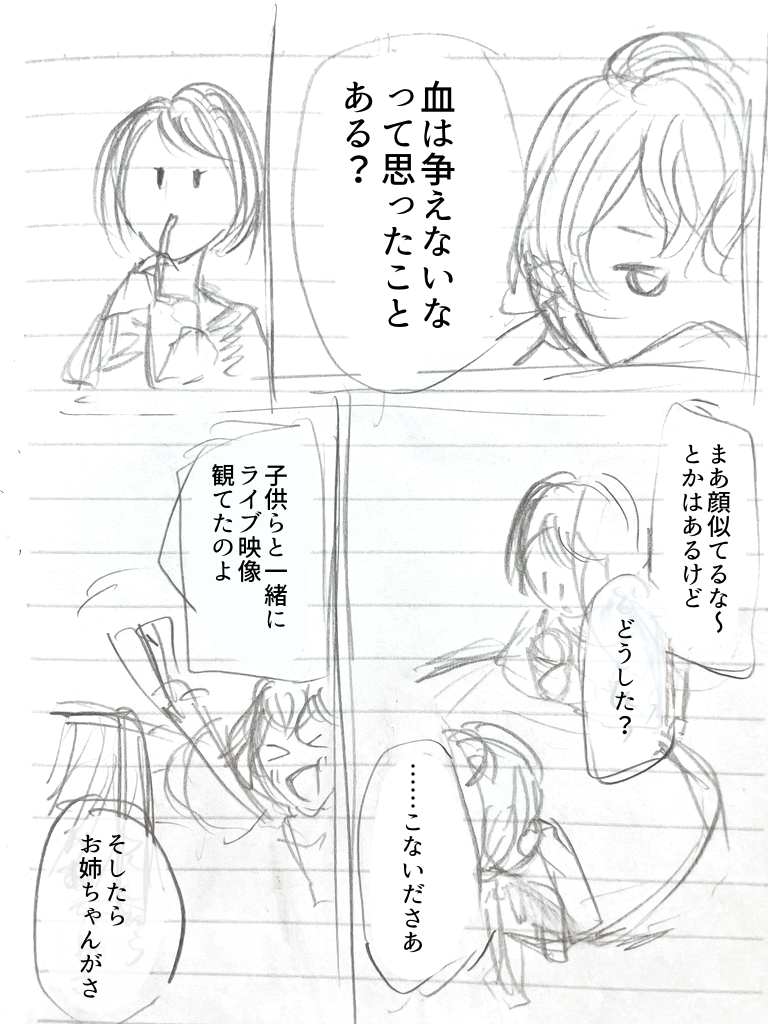 血は争えないな
って思ったこと
ある？
まあ顔似てるな〜
とかはあるけど
どうした？
……こないださあ
子供らと一緒に
ライブ映像
観てたのよ
そしたら
お姉ちゃんがさ